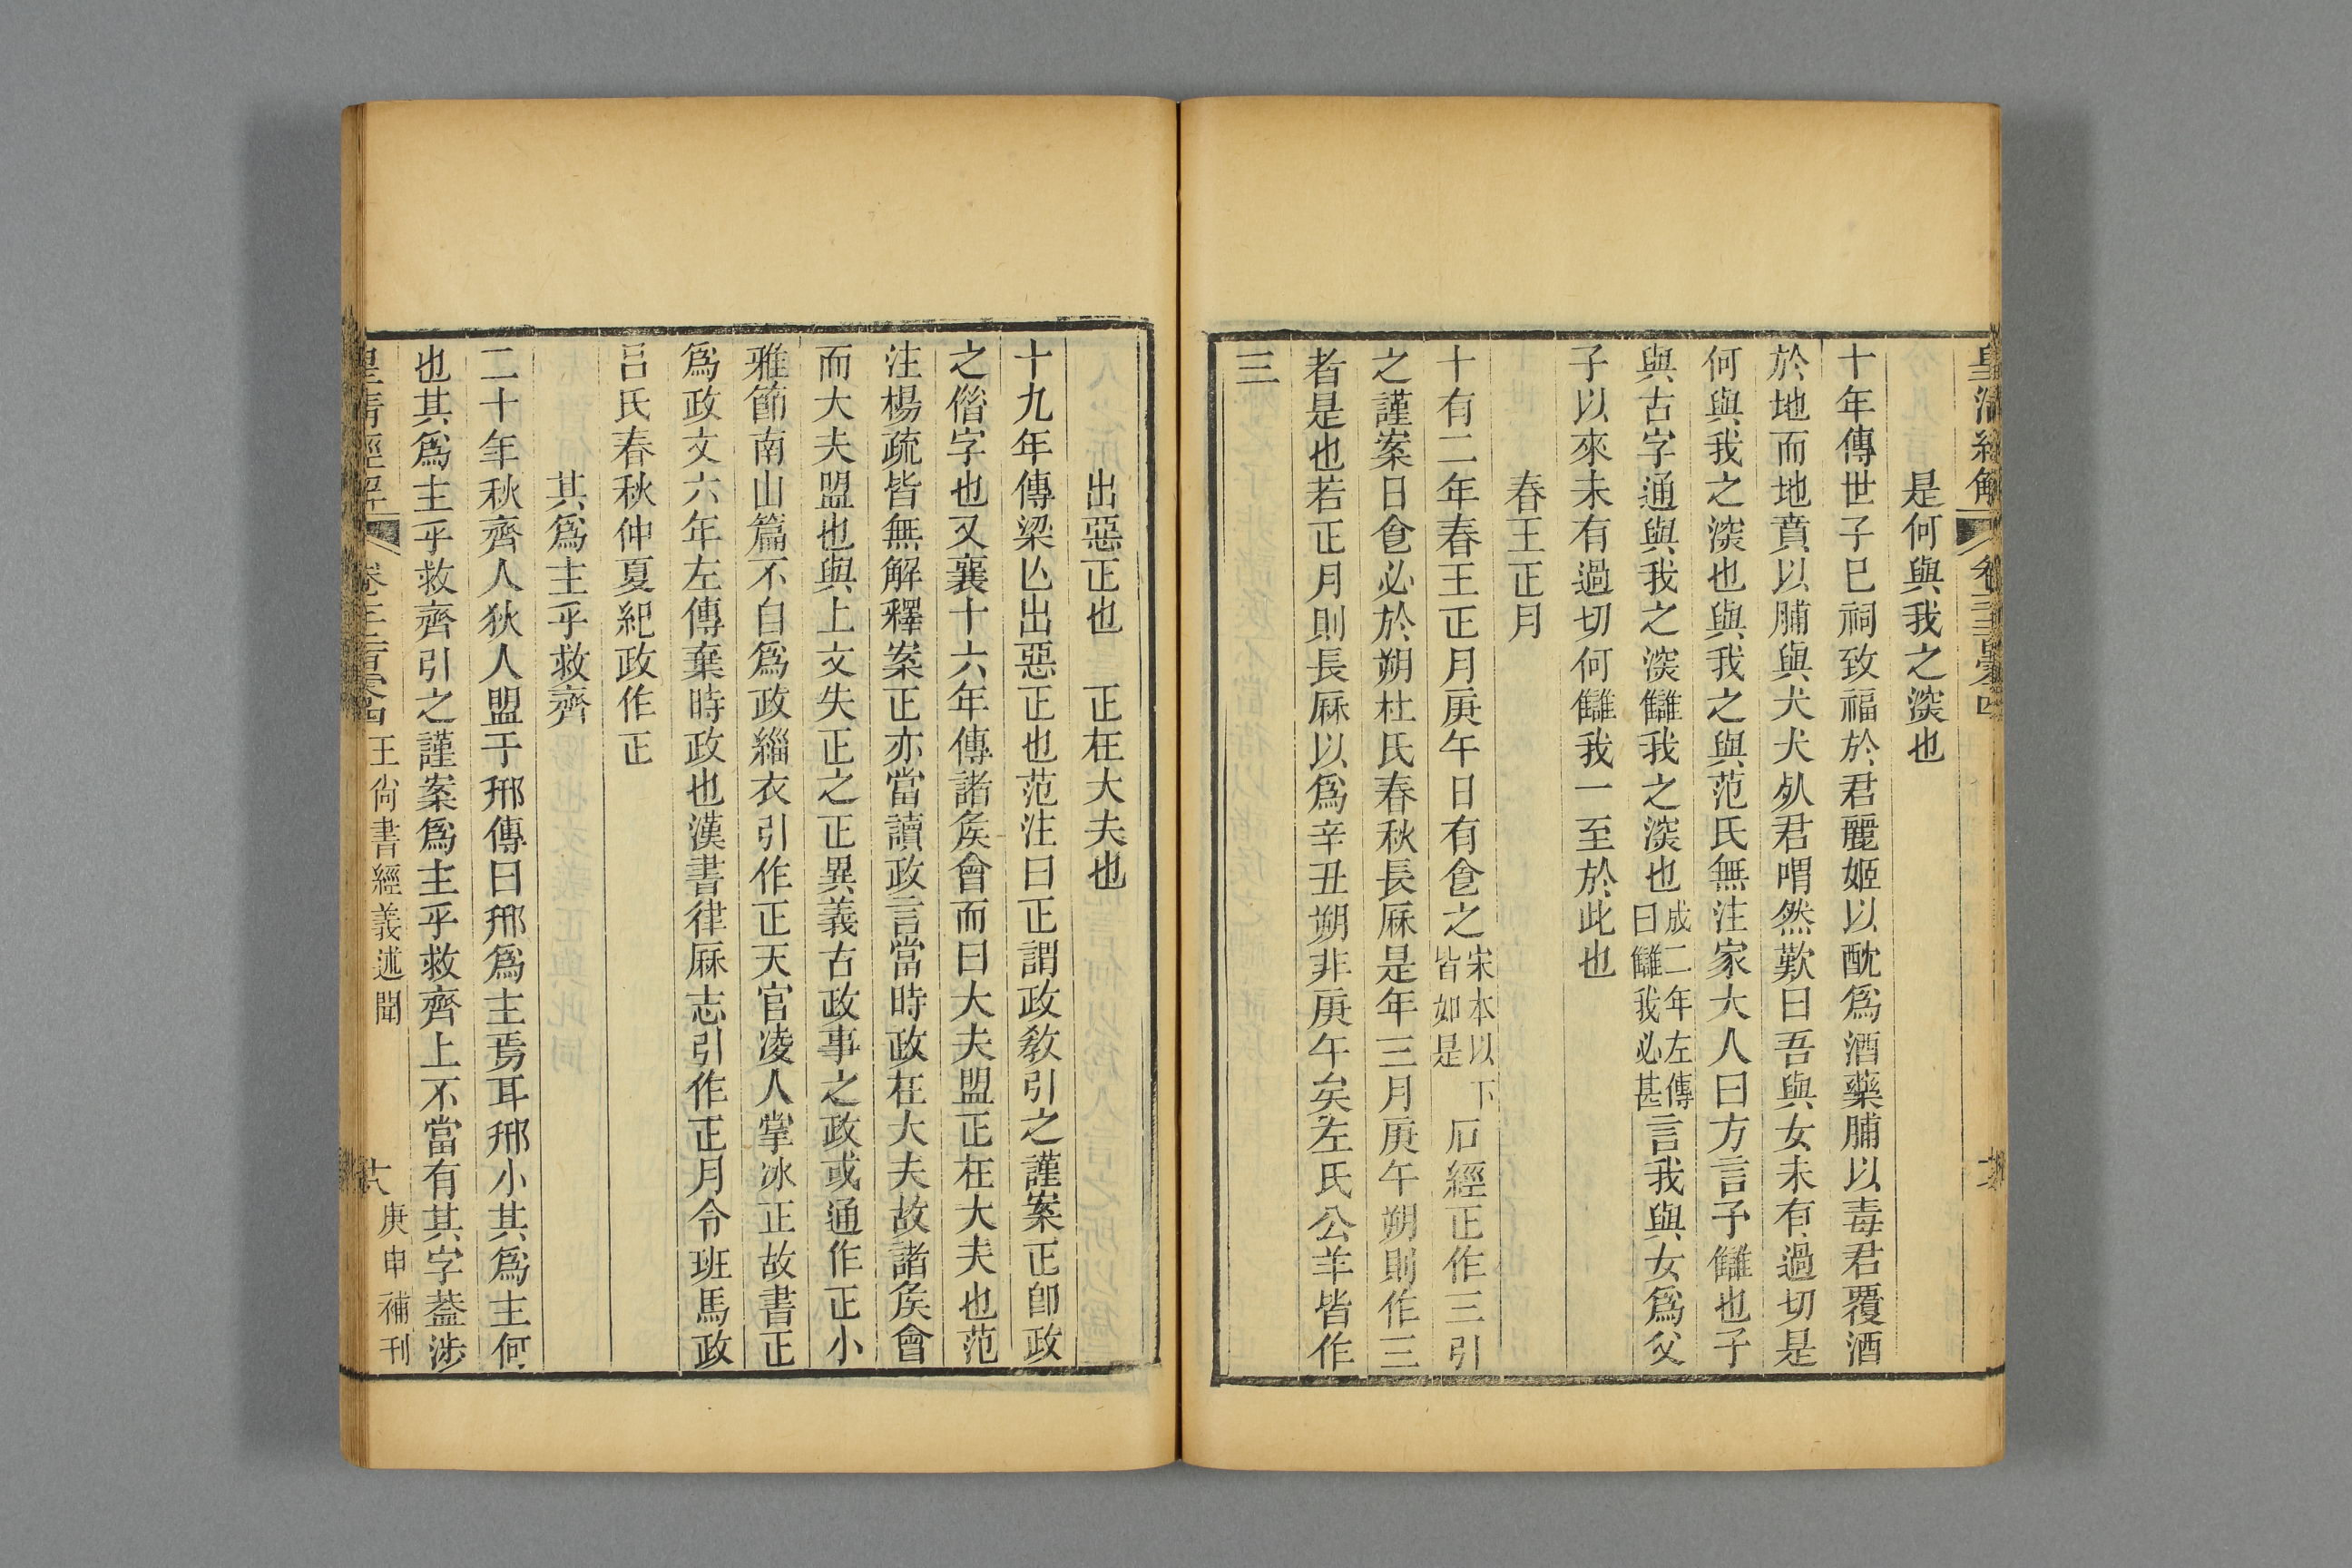 皇清經解
是何與我之湥也
十年傳世子已祠致福於君麗姬以酖爲酒藥脯以毒君覆酒
於地而地賁以脯與犬犬𣦸君喟然歎曰吾與女未有過切是
何與我之湥也與我之與范氏無注家大人曰方言予讎也予
與古字通與我之湥讎我之湥也成二年左傳曰讎我必甚言我與女爲父
子以來未有過切何讎我一至於此也
春王正月
十有二年春王正月庚午日有食之宋本以下皆如是石經正作三引
之謹案日食必於朔杜氏春秋長厤是年三月庚午朔則作三
者是也若正月則長厤以爲辛丑朔非庚午矣左氏公羊皆作
三
出惡正也　正在大夫也
十九年傳梁亾出惡正也范注曰正謂政敎引之謹案正卽政
之偕字也又襄十六年傳諸矦會而曰大夫盟正在大夫也范
注楊疏皆無解釋案正亦當讀政言當時政在大夫故諸矦會
而大夫盟也與上文失正之正異義古政事之政或通作正小
雅節南山篇不自爲政緇衣引作正天官凌人掌冰正故書正
爲政文六年左傳棄時政也漢書律厤志引作正月令班馬政
呂氏春秋仲夏紀政作正
其爲主乎救齊
二十年秋齊人狄人盟于邢傳曰邢爲主焉耳邢小其爲主何
也其爲主乎救齊引之謹案爲主乎救齊上不當有其字葢涉
皇清經解　卷 王尙書經義述聞　六　庚申補刊